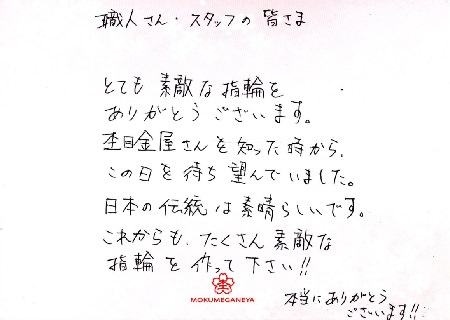 職人さん・スタッフの皆さま
とても素敵な指輪を
ありがとうございます。
杢目金屋さんを知った時から、
この日を待ち望んでいました。
日本の伝統は素晴らしいです。
これからも、たくさん素敵な
指輪を作って下さい!!
MOKUMEGANEYA
本当にありがとう
ございます!!